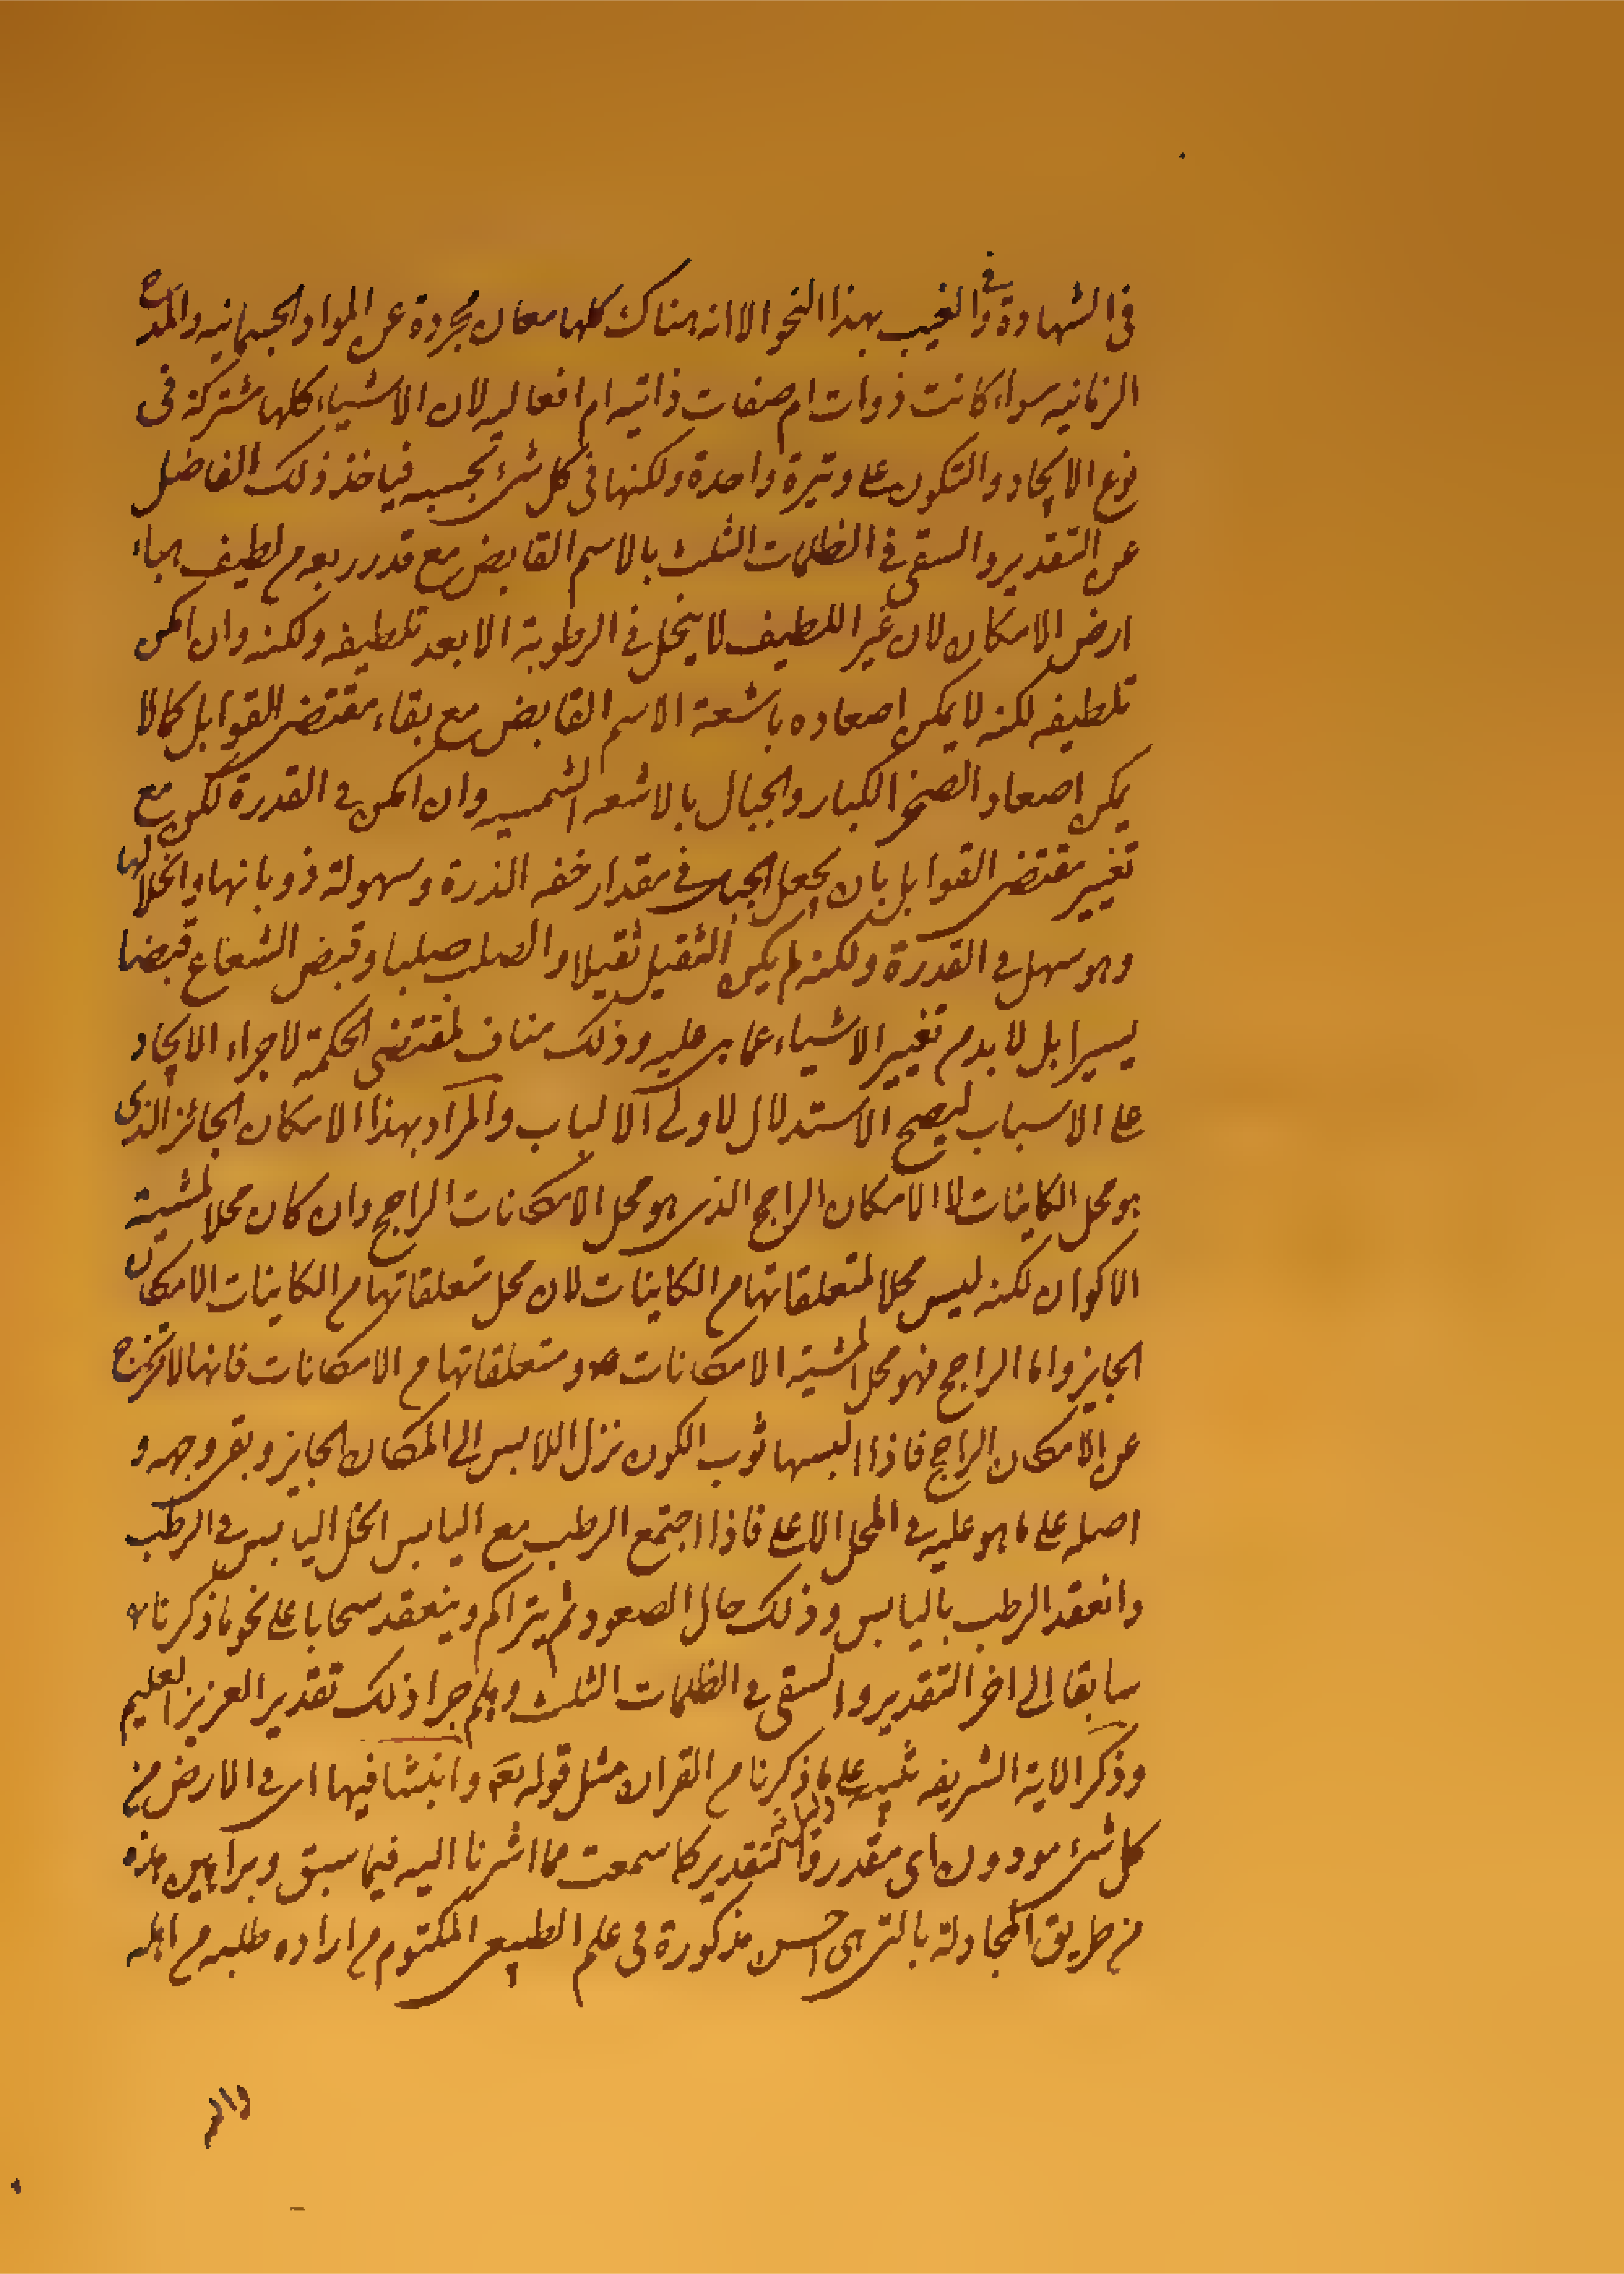 فى الشهادة وفى الغيب بهذا النحو الا انه هناك كلها معان مجردة عن المواد الجسمانيه والمدة
الزمانيه سواء كانت ذوات ام صفات ذاتيه ام افعاليه لان الاشياء كلها مشتركة فى
نوع الايجاد والتكون على وتيرة واحدة ولكنها فى كل شئ بحسبه فياخذ ذلك الفاضل
عن التقدير والسقى فى الظلمات الثلث بالاسم القابض مع قدر ربعه م لطيف هباء
ارض الامكان لان غير اللطيف لا ينحل فى الرطوبة الا بعد تلطيفه ولكنه وان امكن
تلطيفه لكنه لا يمكن اصعاده باشعة الاسم القابض مع بقاء مقتضى القوابل كما لا
يمكن اصعاد الصخر الكبار والجبال بالاشعه الشمسيه وان امكن فى القدرة لكن مع
تغيير مقتضى القوابل بان يجعل الجبال فى مقدار خفه الذرة وسهولة ذوبانها وانحلالها
وهو سهل فى القدرة ولكنه لم يكن الثقيل ثقيلا والصلب صلبا وقبض الشعاع قبضا
يسيرا بل لا بد م تغيير الاشياء عما هى عليه وذلك مناف لمقتضى الحكمة لاجراء الايجاد
على الاسباب ليصح الاستدلال لاولى الالباب والمراد بهذا الامكان الجائز الذى
هو محل الكاينات لا الامكان الراجح الذى هو محل الامكانات الراجح وان كان محلا لمشية
الاكوان لكنه ليس محلا لمتعلقاتها م الكاينات لان محل متعلقاتها م الكاينات الامكان
الجايز واما الراجح فهو محل لمشية الامكانات ومتعلقاتها م الامكانات فانها لا تخرج
عن الامكان الراجح فاذا البسها ثوب الكون نزل اللابس الى المكان الجايز وبقى وجهه و
اصله على ما هو عليه فى المحل الاعلى فاذا اجتمع الرطب مع اليابس انحل اليابس فى الرطب
وانعقد الرطب باليابس وذلك حال الصعود ثم يتراكم وينعقد سحابا على نحو ما ذكرنا
سابقا الى اخر التقدير والسقى فى الظلمات الثلث وهلم جرا ذلك تقدير العزيز العليم
وذكر الاية الشريفه تنبيه على ما ذكرنا م القران مثل قوله تعه وانبتنا فيها اى فى الارض من
كل شئ موزون اى مقدر التقدير كما سمعت مما اشرنا اليه فيما سبق وبراهين هذه
من طريق المجادلة بالتى هى احسن مذكورة فى علم الطبيعى المكتوم م اراده طلبه م اهله